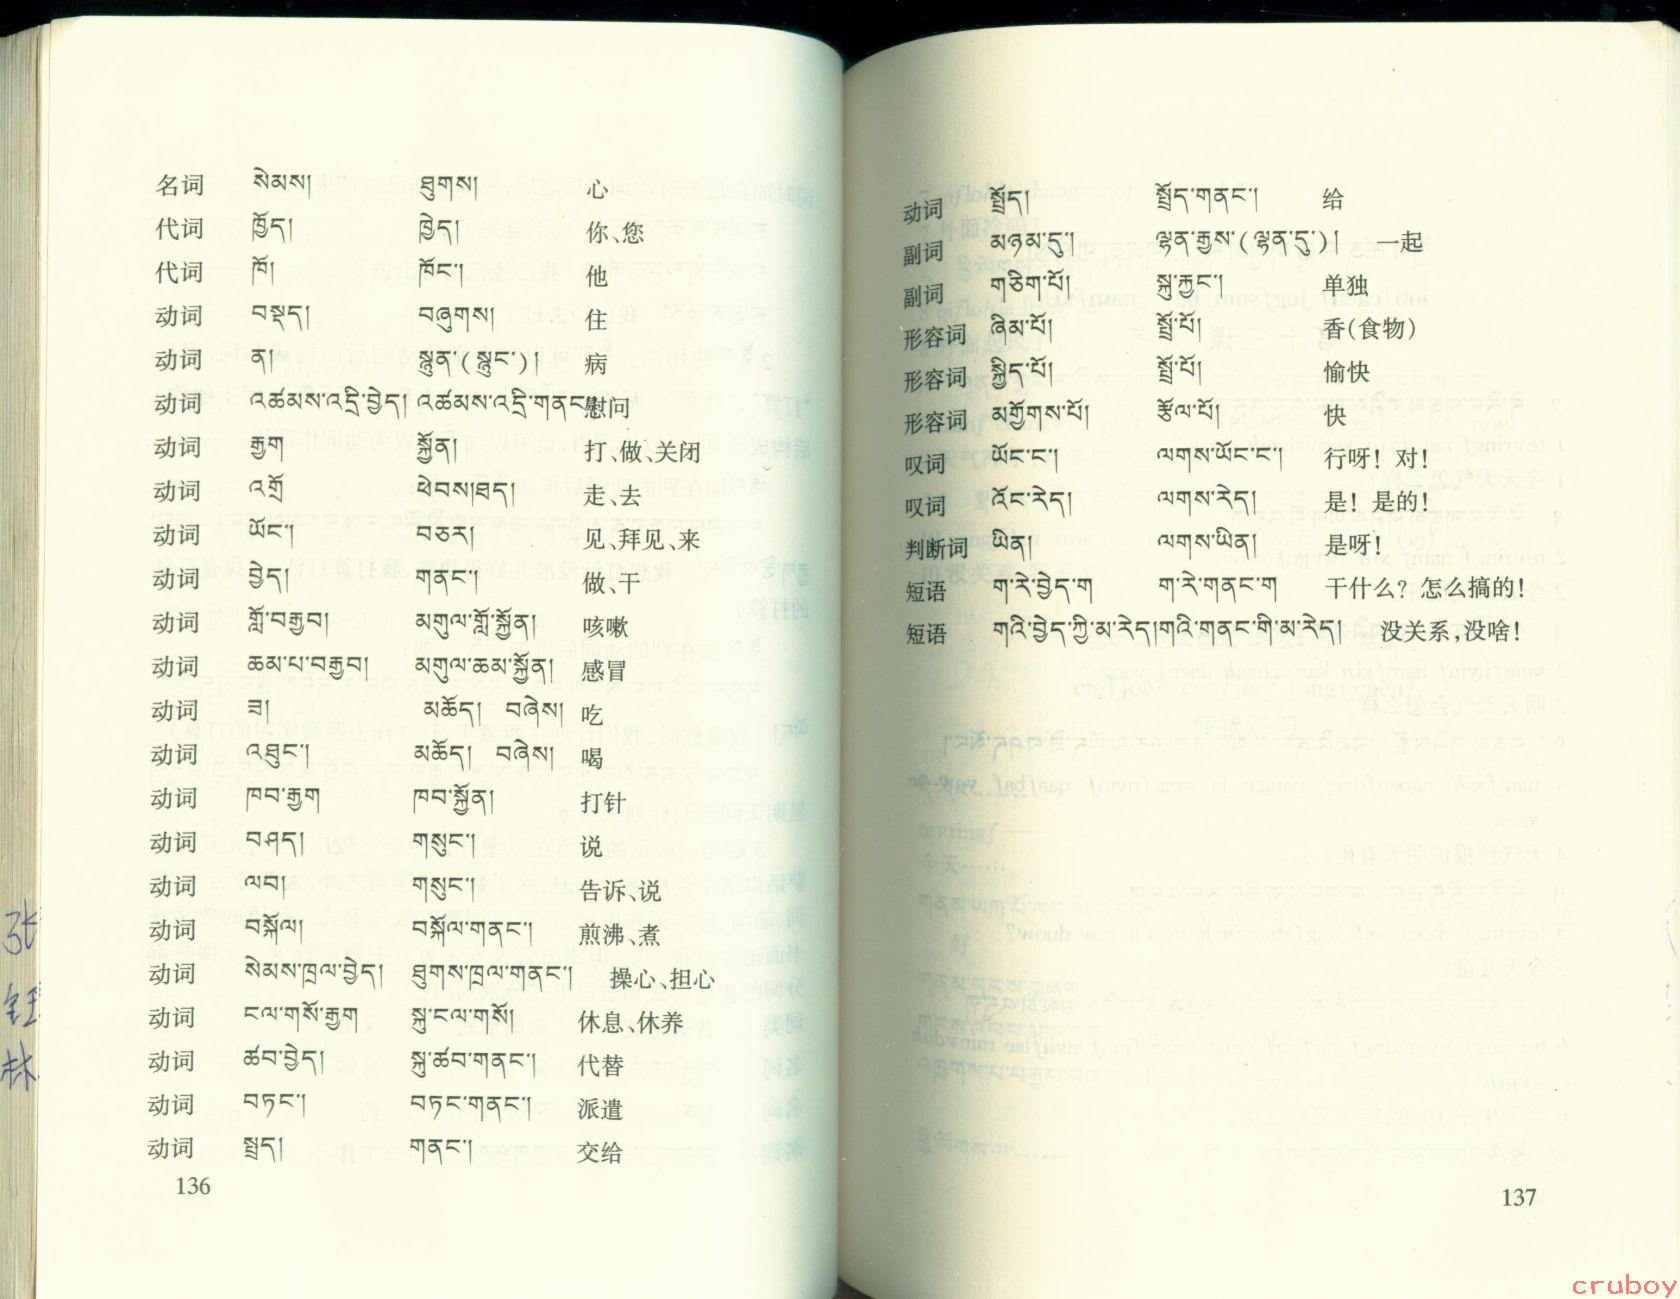 名词 སེམས། ཐུགས། 心
代词 ཁྱོད། ཁྱེད། 你、您
代词 ཁོ། ཁོང་། 他
动词 བསྡད། བཞུགས། 住
动词 ན། སྙུན་(སྙུང་)། 病
动词 འཚམས་འདྲི་བྱེད། འཚམས་འདྲི་གནང 慰问
动词 རྒྱག སྐྱོན། 打、做、关闭
动词 འགྲོ ཕེབས།ཐད། 走、去
动词 ཡོང་། བཅར། 见、拜见、来
动词 བྱེད། གནང་། 做、干
动词 གློ་བརྒྱབ། མགུལ་གློ་སྐྱོན། 咳嗽
动词 ཆམ་པ་བརྒྱབ། མགུལ་ཆམ་སྐྱོན། 感冒
动词 ཟ། མཆོད། བཞེས། 吃
动词 འཐུང་། མཆོད། བཞེས། 喝
动词 ཁབ་རྒྱག ཁབ་སྐྱོན། 打针
动词 བཤད། གསུང་། 说
动词 ལབ། གསུང་། 告诉、说
动词 བསྐོལ། བསྐོལ་གནང་། 煎沸、煮
动词 སེམས་ཁྲལ་བྱེད། ཐུགས་ཁྲལ་གནང་། 操心、担心
动词 ངལ་གསོ་རྒྱག སྐུ་ངལ་གསོ། 休息、休养
动词 ཚབ་བྱེད། སྐུ་ཚབ་གནང་། 代替
动词 བཏང་། བཏང་གནང་། 派遣
动词 སྤྲད། གནང་། 交给
136
动词 སྤྲོད། སྤྲོད་གནང་། 给
副词 མཉམ་དུ། ལྷན་རྒྱས་(ལྷན་དུ་)། 一起
副词 གཅིག་པོ། སྐུ་རྐྱང་། 单独
形容词 ཞིམ་པོ། སྤྲོ་པོ། 香(食物)
形容词 སྐྱིད་པོ། སྤྲོ་པོ། 愉快
形容词 མགྱོགས་པོ། རྩོལ་པོ། 快
叹词 ཡོང་ང་། ལགས་ཡོང་ང་། 行呀！对！
叹词 འོང་རེད། ལགས་རེད། 是！是的！
判断词 ཡིན། ལགས་ཡིན། 是呀！
短语 ག་རེ་བྱེད་ག ག་རེ་གནང་ག 干什么？怎么搞的！
短语 གའི་བྱེད་ཀྱི་མ་རེད།གའི་གནང་གི་མ་རེད། 没关系,没啥！
137
张
林
cruboy